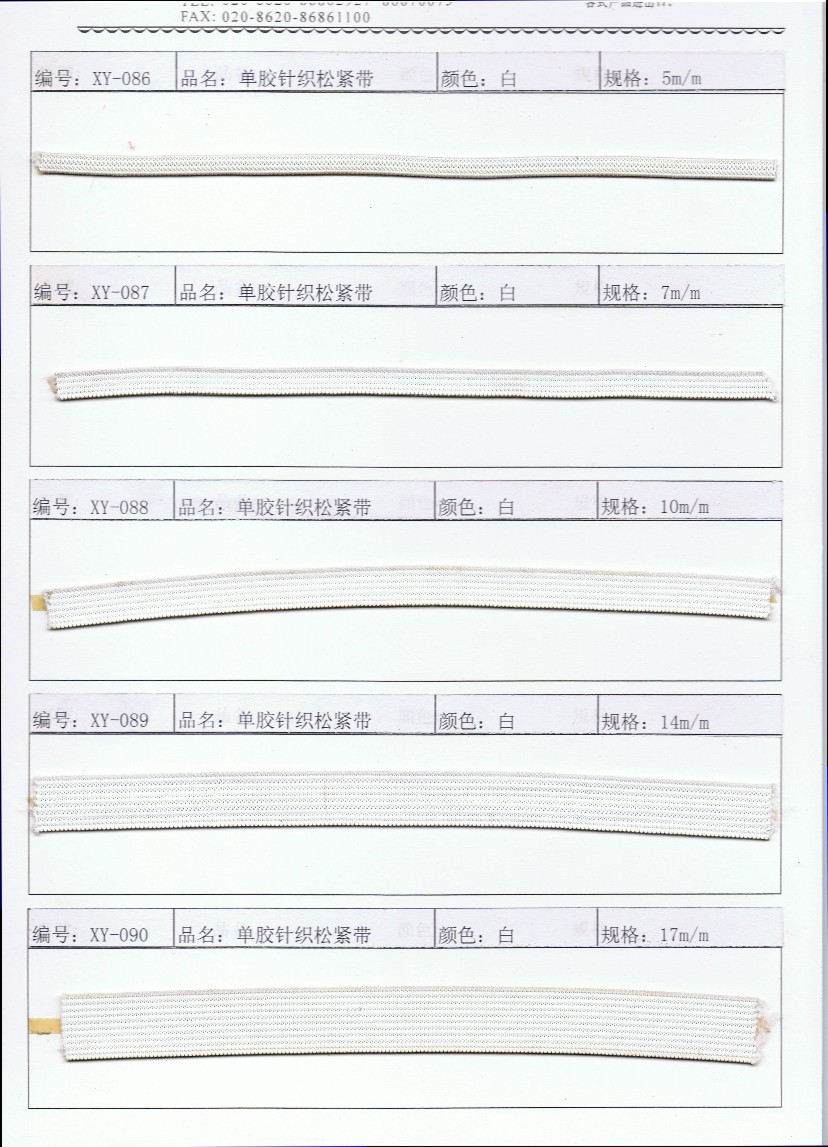 FAX: 020-8620-86861100
编号: XY-086 品名: 单胶针织松紧带 颜色: 白 规格: 5m/m
编号: XY-087 品名: 单胶针织松紧带 颜色: 白 规格: 7m/m
编号: XY-088 品名: 单胶针织松紧带 颜色: 白 规格: 10m/m
编号: XY-089 品名: 单胶针织松紧带 颜色: 白 规格: 14m/m
编号: XY-090 品名: 单胶针织松紧带 颜色: 白 规格: 17m/m